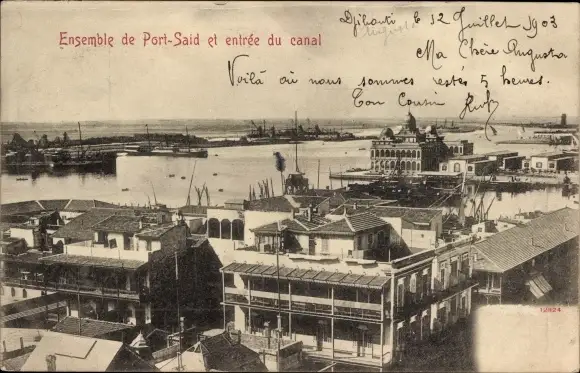 Ensemble de Port-Saïd et entrée du canal
Djibouti le 12 Juillet 1903
Ma Chère Augusta
Voilà où nous sommes restés 5 heures.
Ton Cousin
12824